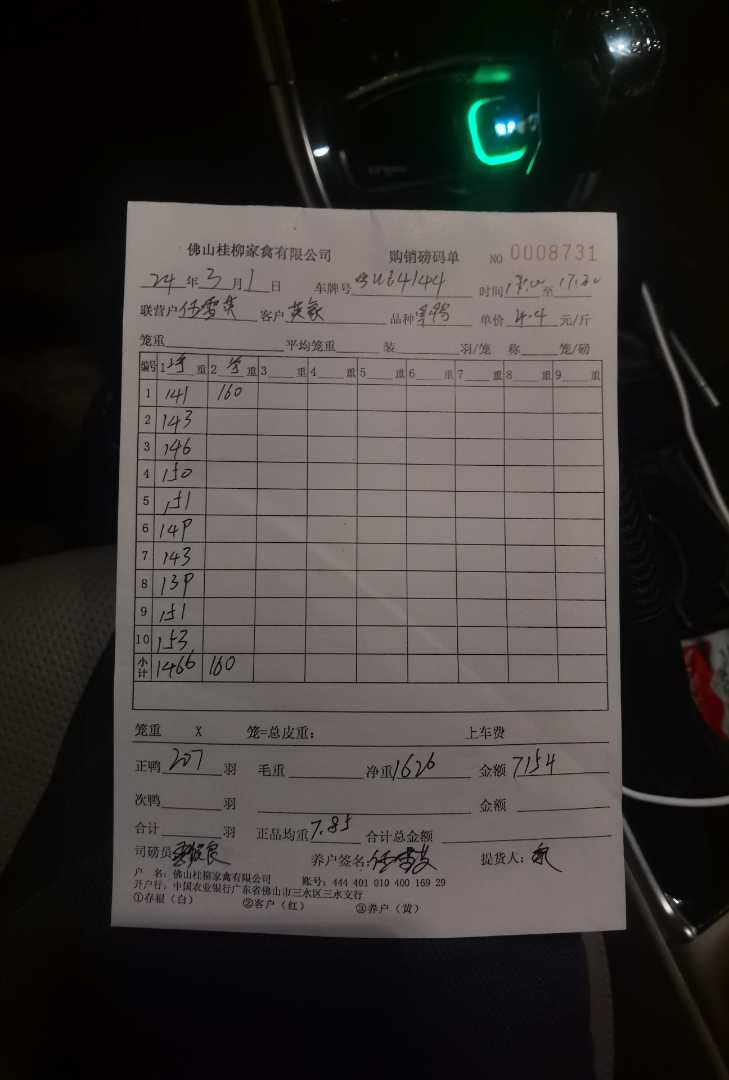 佛山桂柳家禽有限公司 购销磅码单 NO 0008731
24年3月1日 车牌号 时间 至17:20
联营户 客户 品种 单价4.4元/斤
笼重 平均笼重 装 羽/笼 称 笼/磅
编号 1 重 2 重 3 重 4 重 5 重 6 重 7 重 8 重 9 重
1 141 160
2 143
3 146
4 150
5 151
6 149
7 143
8 139
9 151
10 153
小计 1466 160
笼重 X 笼=总皮重: 上车费
正鸭207羽 毛重 净重1626 金额7154
次鸭 羽 金额
合计 羽 正品均重7.85 合计总金额
司磅员 养户签名: 提货人:
户 名:佛山桂柳家禽有限公司 账号:444 401 010 400 169 29
开户行:中国农业银行广东省佛山市三水区三水支行
①存根(白) ②客户(红) ③养户(黄)